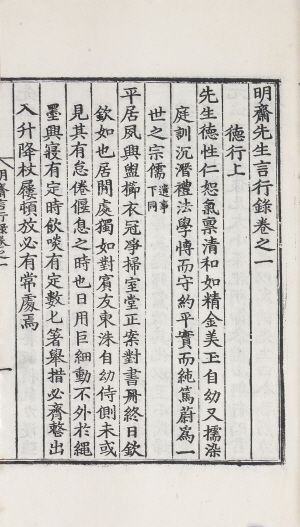 明齋先生言行錄卷之一
德行上
先生德性仁恕氣禀清和如精金美玉自幼又擩染
庭訓沉潛禮法學愽而守約平實而純篤蔚爲一
世之宗儒遺事下同
平居夙興盥櫛衣冠淨掃室堂正案對書冊終日欽
欽如也居閒處獨如對賓友東洙自幼侍側未或
見其有怠倦偃息之時也日用巨細動不外於繩
墨興寢有定時飲啖有定數匕箸舉措必齊整出
入升降杖屨頓放必有常處焉
明齋言行錄卷之一
一